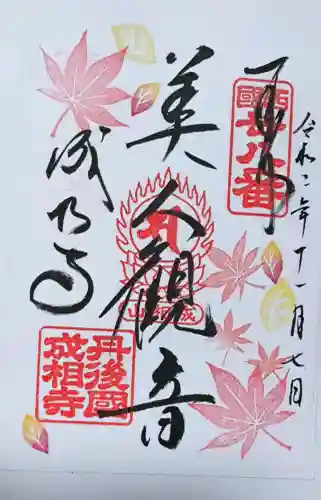 令和二年十一月七日
西國
廿八番
美人觀音
成相山
成相寺
丹後國
成相寺